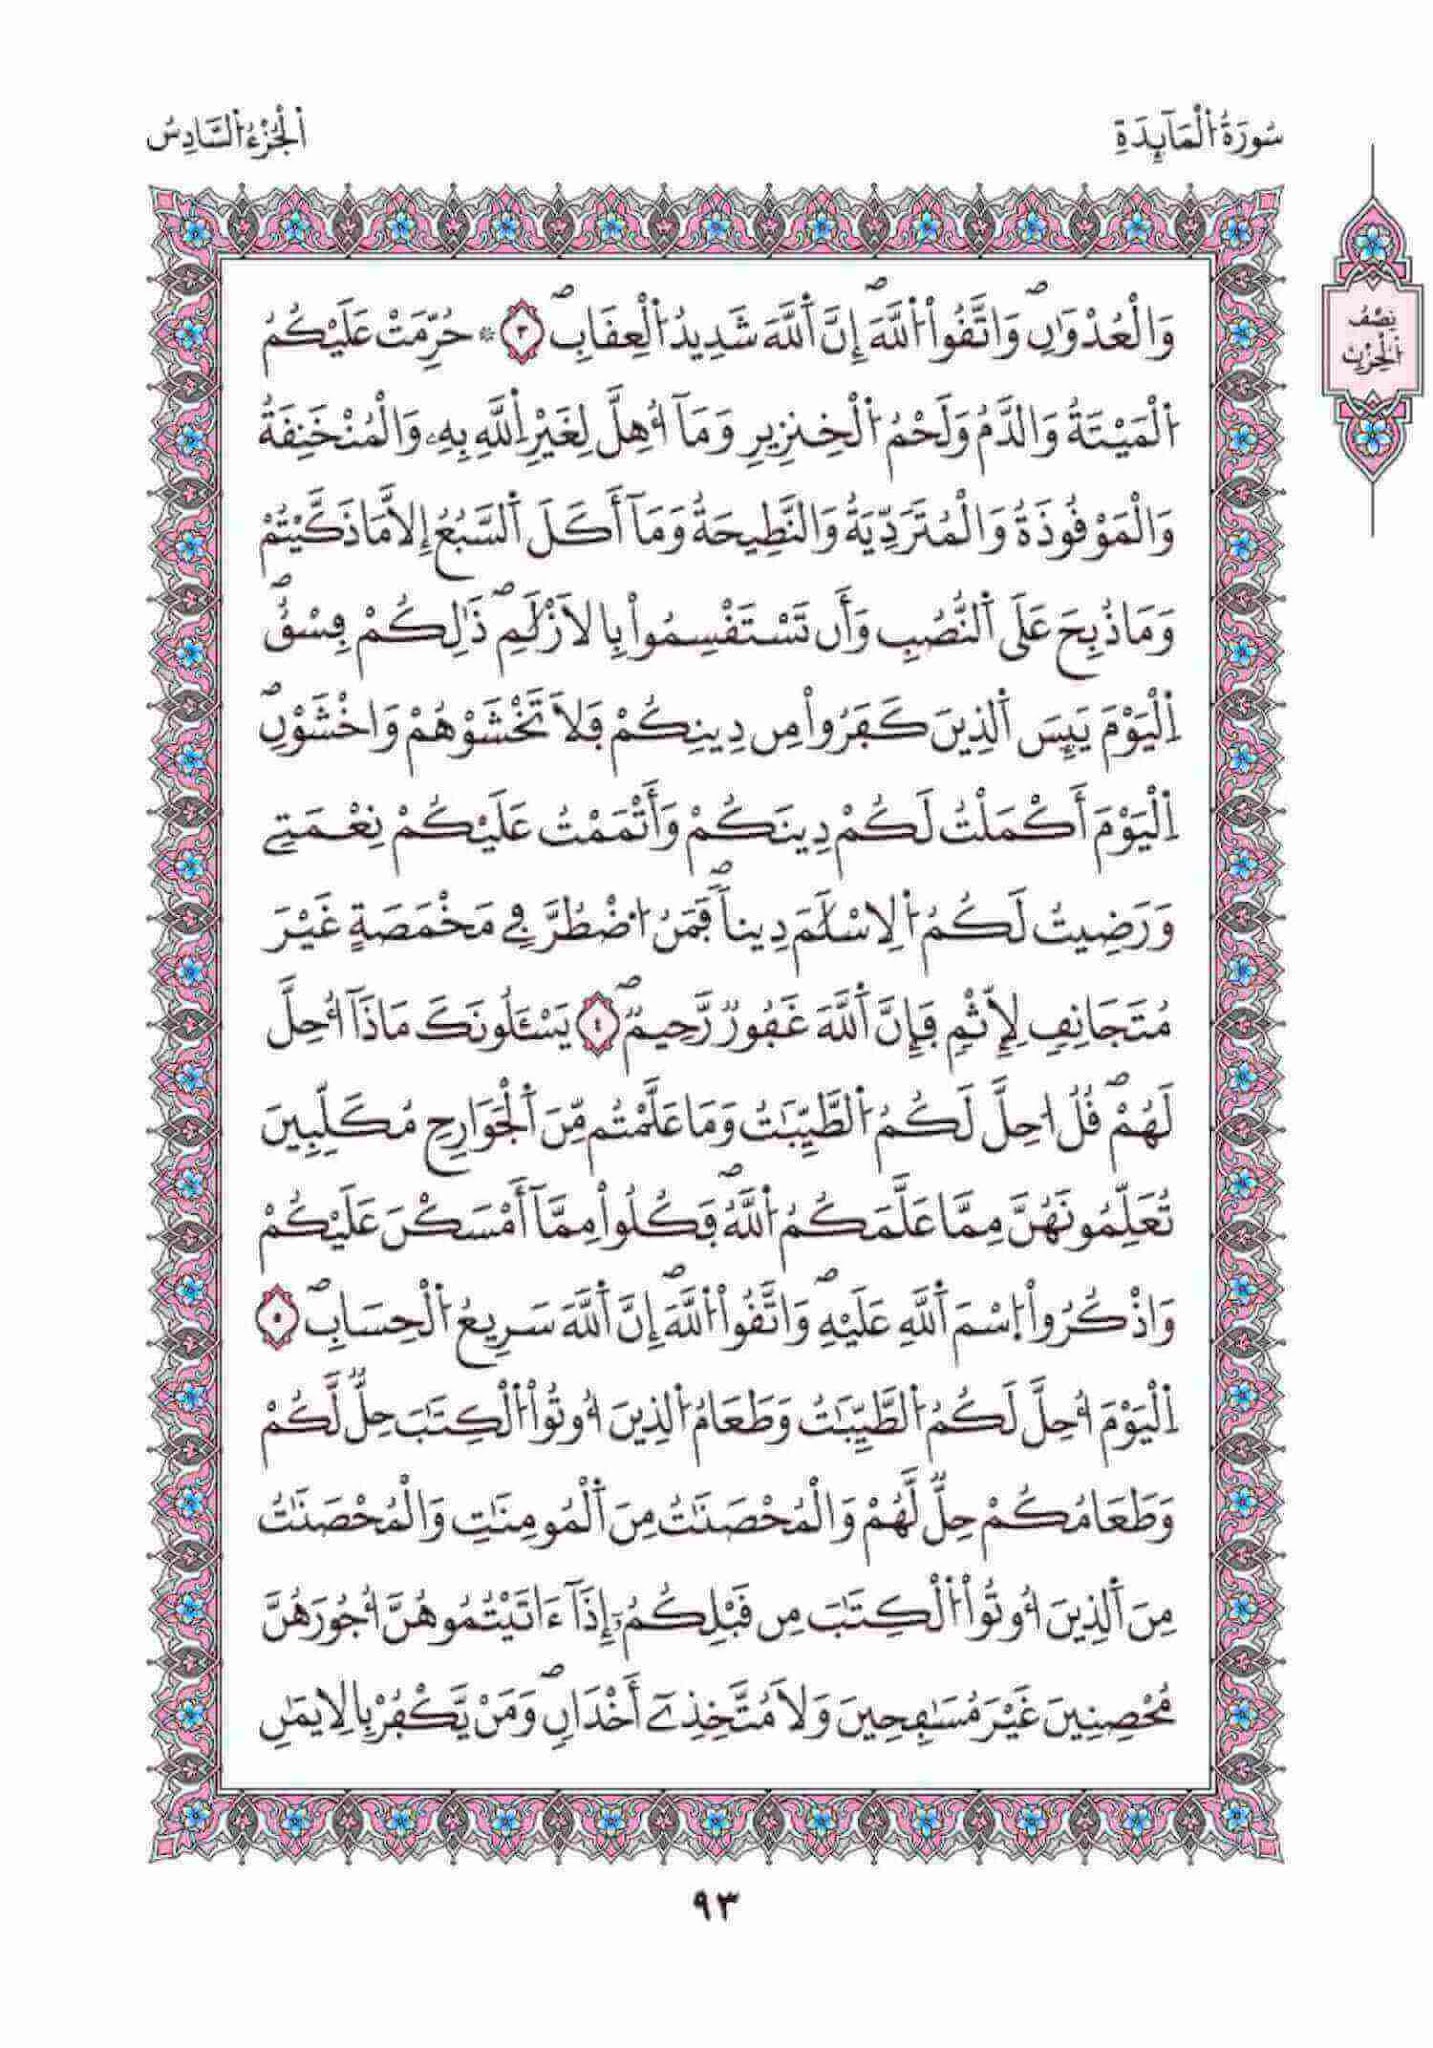 سُورَةُ اُ۬لْمَآئِدَةِ
اَ۬لْجُزْءُ اُ۬لسَّادِسُ
نِصْفُ
اُ۬لْحِزْبِ
وَالْعُدْوَٰنِۖ وَاتَّقُواْ اُ۬للَّهَۖ إِنَّ اَ۬للَّهَ شَدِيدُ اُ۬لْعِقَابِۖ ٣ ۞ حُرِّمَتْ عَلَيْكُمُ
اُ۬لْمَيْتَةُ وَالدَّمُ وَلَحْمُ اُ۬لْخِنزِيرِ وَمَآ أُهِلَّ لِغَيْرِ اِ۬للَّهِ بِهِۦ وَالْمُنْخَنِقَةُ
وَالْمَوْقُوذَةُ وَالْمُتَرَدِّيَةُ وَالنَّطِيحَةُ وَمَآ أَكَلَ اَ۬لسَّبُعُ إِلَّا مَا ذَكَّيْتُمْ
وَمَا ذُبِحَ عَلَى اَ۬لنُّصُبِ وَأَن تَسْتَقْسِمُواْ بِالَازْلَٰمِۖ ذَٰلِكُمْ فِسْقٌۖ
اِ۬لْيَوْمَ يَئِسَ اَ۬لذِينَ كَفَرُواْ مِن دِينِكُمْ فَلَا تَخْشَوْهُمْ وَاخْشَوْنِۖ
اِ۬لْيَوْمَ أَكْمَلْتُ لَكُمْ دِينَكُمْ وَأَتْمَمْتُ عَلَيْكُمْ نِعْمَتِے
وَرَضِيتُ لَكُمُ اُ۬لِاسْلَٰمَ دِيناٗۖ فَمَنُ اُ۟ضْطُرَّ فِے مَخْمَصَةٍ غَيْرَ
مُتَجَانِفٖ لِإِثْمٖ فَإِنَّ اَ۬للَّهَ غَفُورٞ رَّحِيمٞۖ ٤ يَسْـَٔلُونَكَ مَاذَآ أُحِلَّ
لَهُمْۖ قُلُ ا۟حِلَّ لَكُمُ اُ۬لطَّيِّبَٰتُ وَمَا عَلَّمْتُم مِّنَ اَ۬لْجَوَارِحِ مُكَلِّبِينَ
تُعَلِّمُونَهُنَّ مِمَّا عَلَّمَكُمُ اُ۬للَّهُۖ فَكُلُواْ مِمَّآ أَمْسَكْنَ عَلَيْكُمْ
وَاذْكُرُواْ اُ۪سْمَ اَ۬للَّهِ عَلَيْهِۖ وَاتَّقُواْ اُ۬للَّهَۖ إِنَّ اَ۬للَّهَ سَرِيعُ اُ۬لْحِسَابِۖ ٥
اِ۬لْيَوْمَ أُحِلَّ لَكُمُ اُ۬لطَّيِّبَٰتُ وَطَعَامُ اُ۬لذِينَ أُوتُواْ اُ۬لْكِتَٰبَ حِلّٞ لَّكُمْ
وَطَعَامُكُمْ حِلّٞ لَّهُمْ وَالْمُحْصَنَٰتُ مِنَ اَ۬لْمُومِنَٰتِ وَالْمُحْصَنَٰتُ
مِنَ اَ۬لذِينَ أُوتُواْ اُ۬لْكِتَٰبَ مِن قَبْلِكُمُۥٓ إِذَآ ءَاتَيْتُمُوهُنَّ أُجُورَهُنَّ
مُحْصِنِينَ غَيْرَ مُسَٰفِحِينَ وَلَا مُتَّخِذِےٓ أَخْدَانٖۖ وَمَنْ يَّكْفُرْ بِالِايمَٰنِ
٩٣